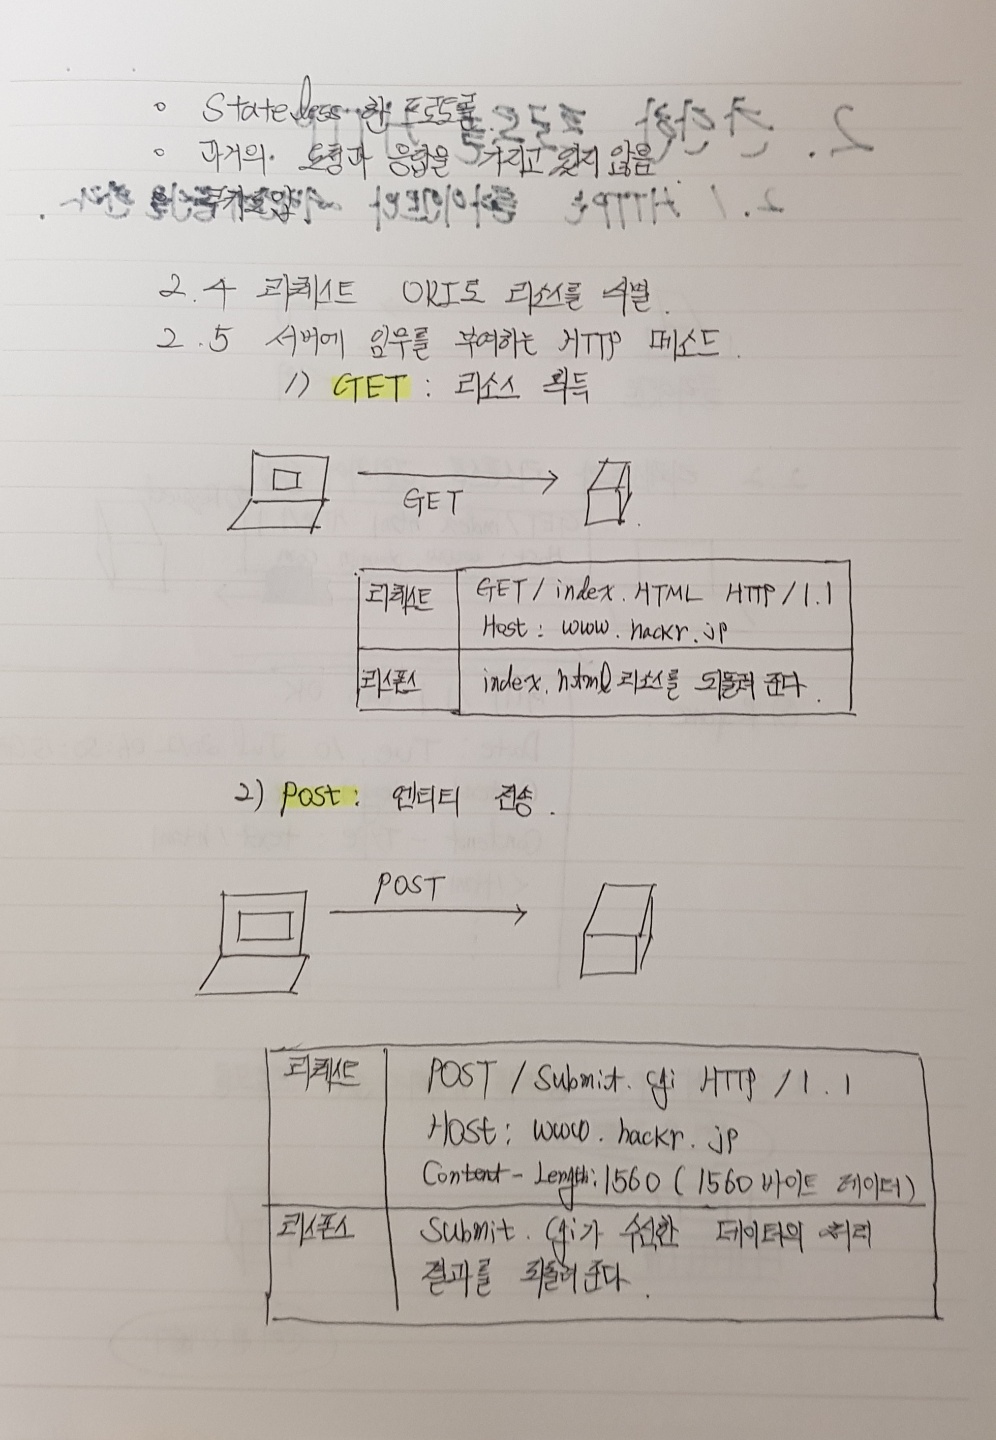 ◦ Stateless 한 프로토콜.
◦ 과거의 요청과 응답을 가지고 있지 않음.
2.4 리퀘스트 URI로 리소스를 식별.
2.5 서버에 임무를 부여하는 HTTP 메소드.
1) GET : 리소스 획득
GET
리퀘스트 GET / index.HTML HTTP / 1.1
Host : www.hackr.jp
리스폰스 index.html 리소스를 되돌려 준다.
2) post : 엔티티 전송.
POST
리퀘스트 POST / Submit.cgi HTTP / 1.1
Host : www.hackr.jp
Content-Length : 1560 ( 1560 바이트 데이터 )
리스폰스 Submit.cgi가 수신한 데이터의 처리
결과를 되돌려 준다.